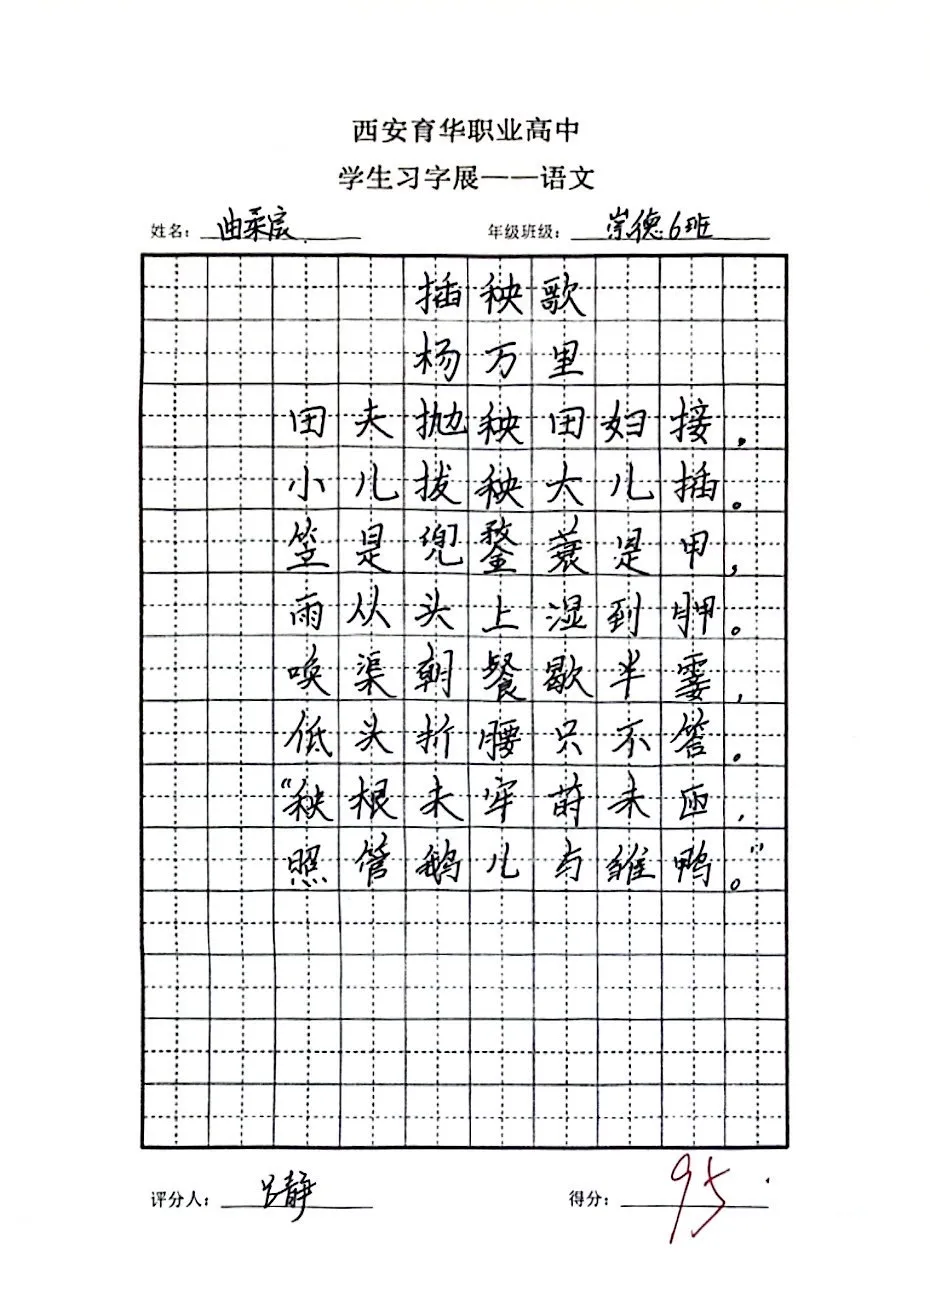 西安育华职业高中
学生习字展——语文
姓名: 曲柔宸 年级班级: 崇德6班
插秧歌
杨万里
田夫抛秧田妇接,
小儿拔秧大儿插。
笠是兜鍪蓑是甲,
雨从头上湿到胛。
唤渠朝餐歇半霎,
低头折腰只不答。
“秧根未牢莳未匝,
照管鹅儿与雏鸭。”
评分人: 吕静 得分: 95